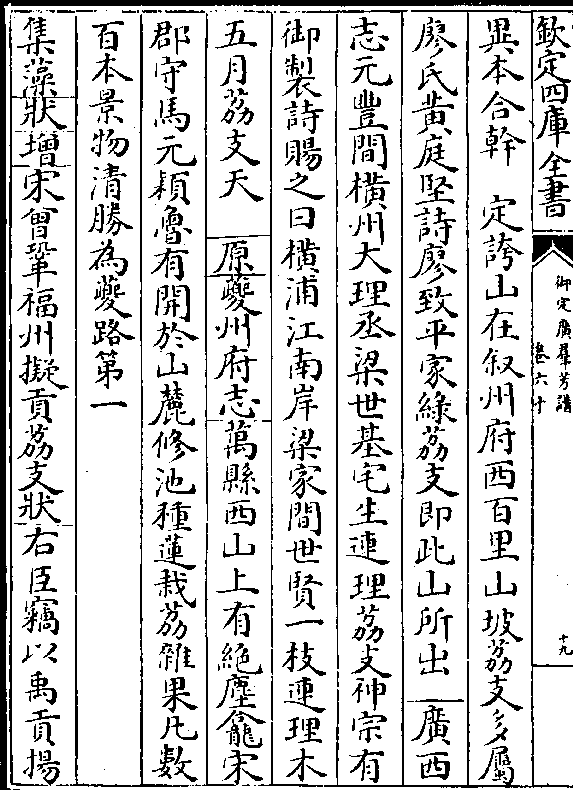 欽定四庫全書
御定廣羣芳譜
卷六十
十九
異本合幹　定誇山在叙州府西百里山坡荔支多屬
廖氏黄庭堅詩廖致平家緑荔支即此山所出　廣西
志元豐間橫州大理丞梁世基宅生連理荔支神宗有
御製詩賜之曰橫浦江南岸梁家間世賢一枝連理木
五月荔支天　原夔州府志萬縣西山上有絶塵龕宋
郡守馬元穎魯有開於山麓修池種蓮栽荔雜果凡數
百本景物清勝為夔路第一
集藻狀增宋曾鞏福州擬貢荔支狀右臣竊以禹貢揚